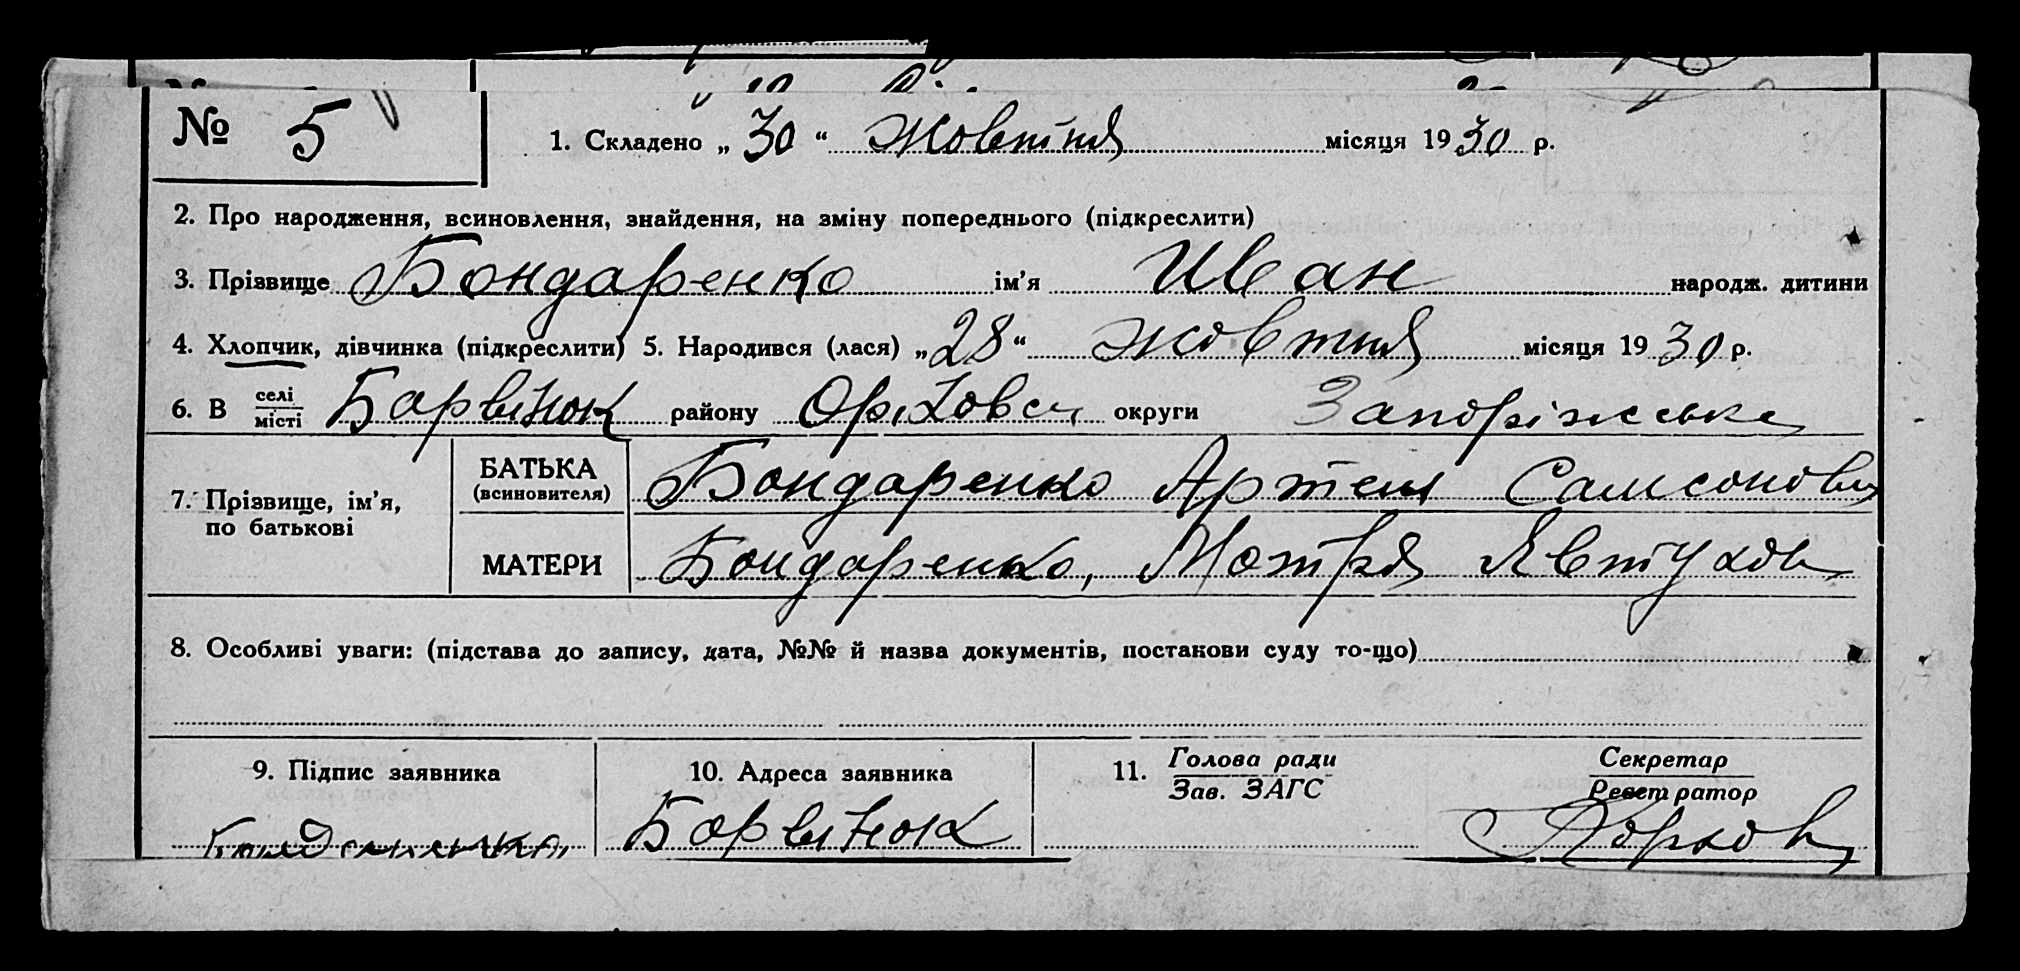 № 5
1. Складено „ 30 “ Жовтня місяця 1930 р.
2. Про народження, всиновлення, знайдення, на зміну попереднього (підкреслити)
3. Прізвище Бондаренко ім’я Иван народж. дитини
4. Хлопчик, дівчинка (підкреслити) 5. Народився (лася) „28“ жовтня місяця 1930 р.
6. В селі/місті Барвінок району Оріховськ округи Запоріжська
7. Прізвище, ім’я, по батькові
БАТЬКА (всиновителя) Бондаренко Артем Самсонович
МАТЕРИ Бондаренко, Мотря Явтухов
8. Особливі уваги: (підстава до запису, дата, №№ й назва документів, постанови суду то-що)
9. Підпис заявника 10. Адреса заявника 11. Голова ради Секретар
Зав. ЗАГС Реєстратор
Бондаренко Барвінок